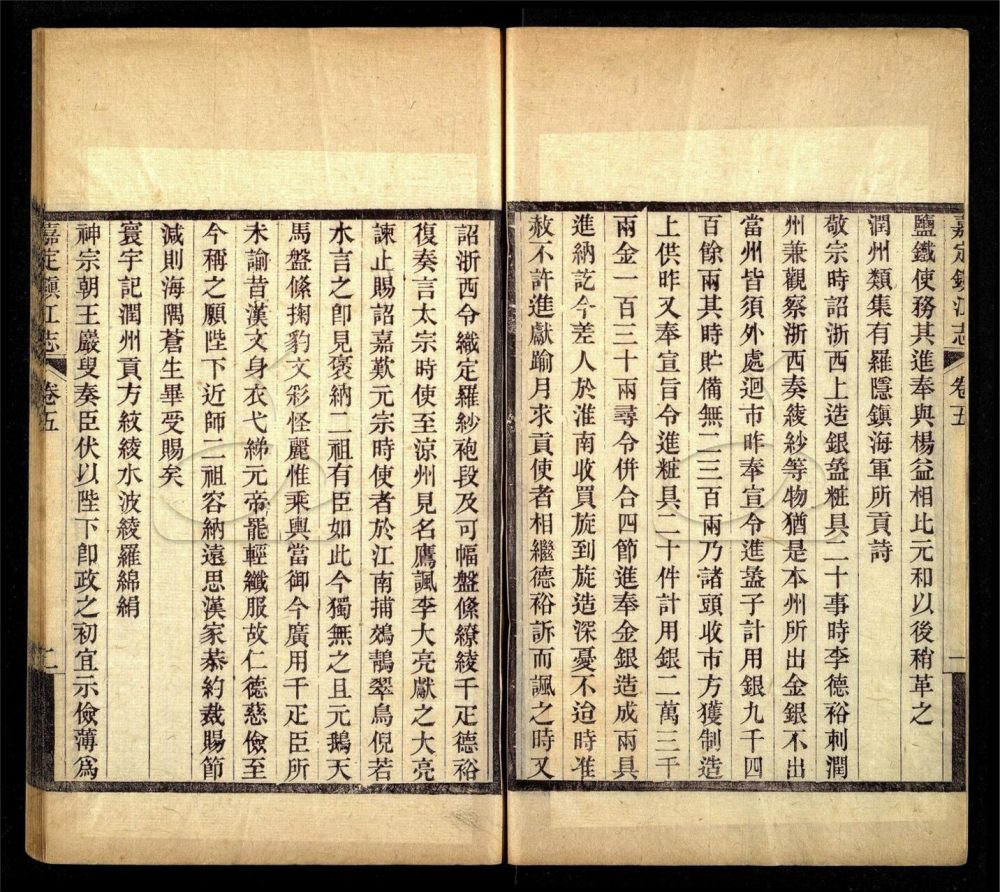 嘉定鎮江志 卷五 一
鹽鐵使務其進奉與楊益相比元和以後稍革之
潤州類集有羅隱鎮海軍所貢詩
敬宗時詔浙西上造銀盝粧具二十事時李德裕刺潤
州兼觀察浙西奏綾紗等物猶是本州所出金銀不出
當州皆須外處迴市昨奉宣令進盝子計用銀九千四
百餘兩其時貯備無二三百兩乃諸頭收市方獲制造
上供昨又奉宣旨令進粧具二十件計用銀二萬三千
兩金一百三十兩尋令併合四節進奉金銀造成兩具
進納訖今差人於淮南收買旋到旋造深憂不迨時准
赦不許進獻踰月求貢使者相繼德裕訴而諷之時又
詔浙西令織定羅紗袍段及可幅盤絛繚綾千疋德裕
復奏言太宗時使至涼州見名鷹諷李大亮獻之大亮
諫止賜詔嘉歎元宗時使者於江南捕鵁鶄翠鳥倪若
水言之卽見褒納二祖有臣如此今獨無之且元鵝天
馬盤絛掬豹文彩怪麗惟乘輿當御今廣用千疋臣所
未諭昔漢文身衣弋綈元帝罷輕纖服故仁德慈儉至
今稱之願陛下近師二祖容納遠思漢家恭約裁賜節
減則海隅蒼生畢受賜矣
寰宇記潤州貢方紋綾水波綾羅綿絹
神宗朝王巖叟奏臣伏以陛下卽政之初宜示儉薄爲
嘉定鎮江志 卷五 二